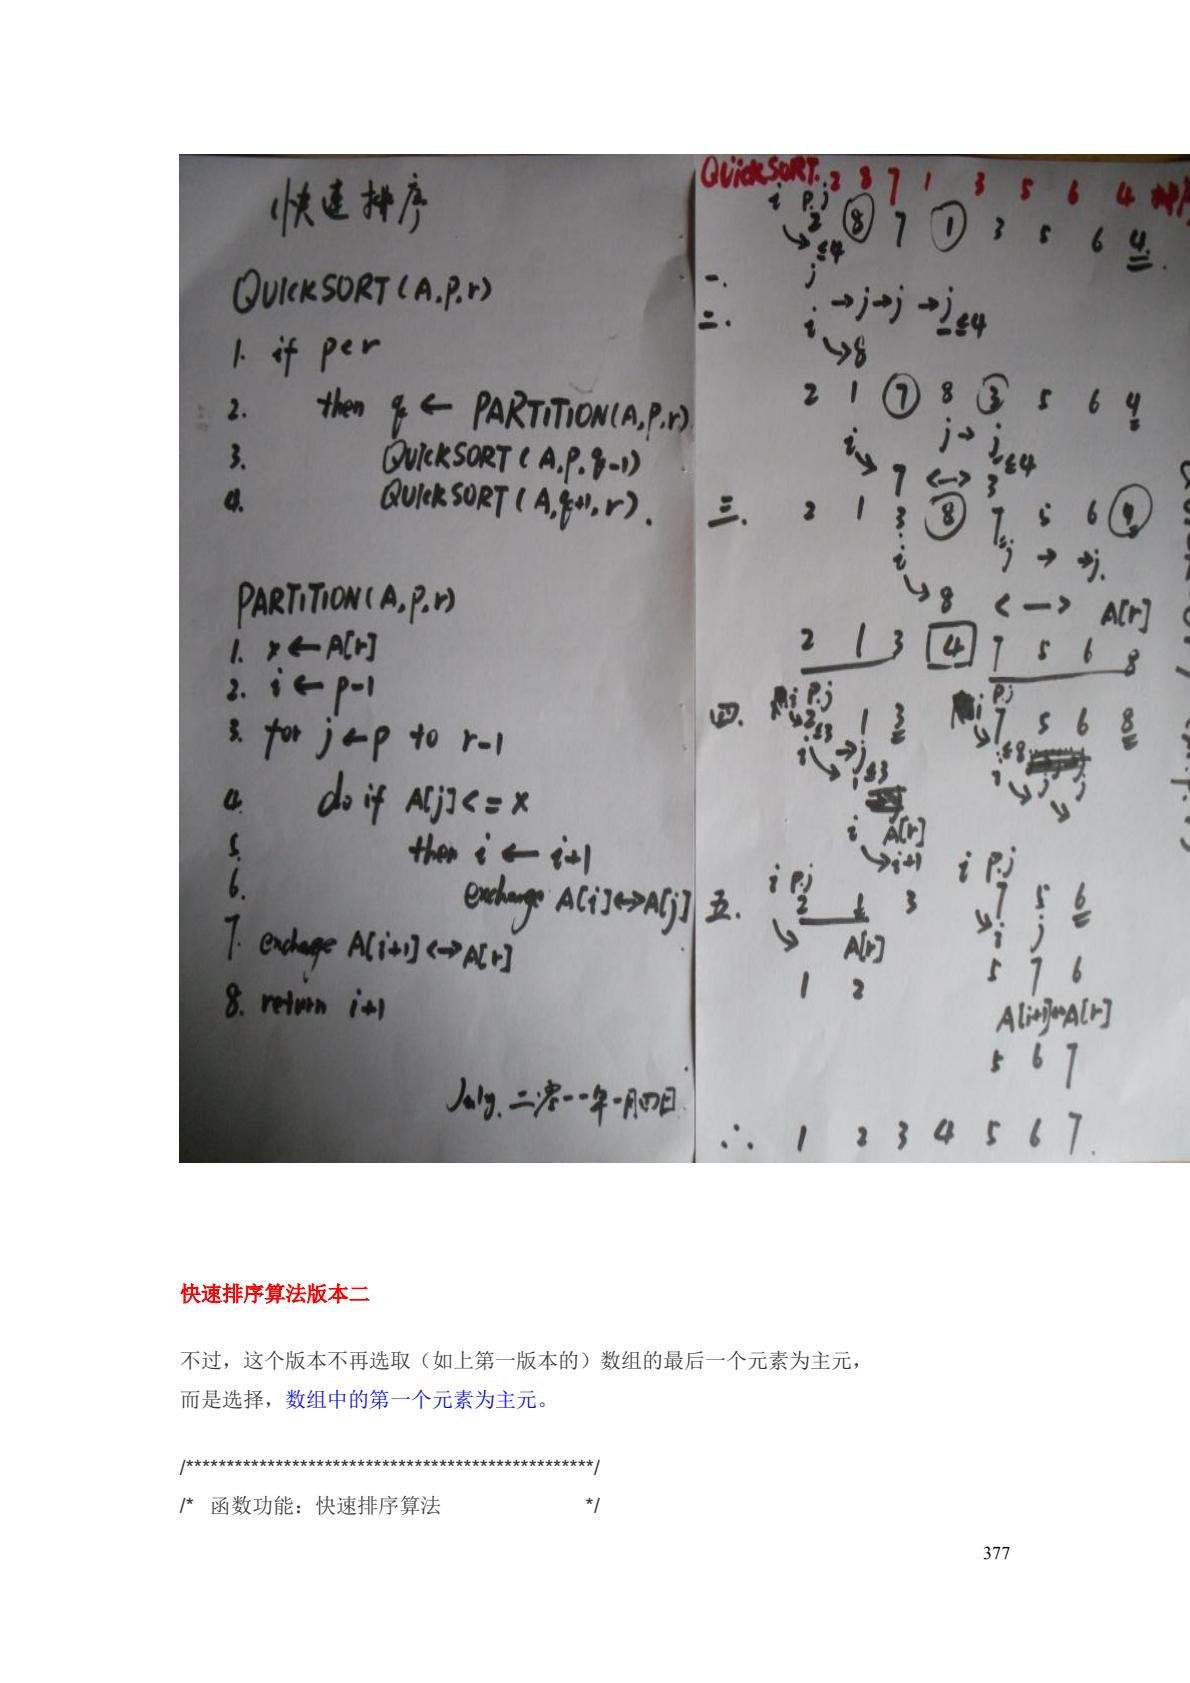 快速排序
QUICKSORT(A,p,r)
1. if p<r
2. then q ← PARTITION(A,p,r)
3. QUICKSORT(A,p,q-1)
4. QUICKSORT(A,q+1,r).
PARTITION(A,p,r)
1. x ← A[r]
2. i ← p-1
3. for j ← p to r-1
4. do if A[j] <= x
5. then i ← i+1
6. exchange A[i]↔A[j]
7. exchange A[i+1]↔A[r]
8. return i+1
July. 二零一一年一月四日
QuickSORT. 2 8 7 1 3 5 6 4 排序
i p.j
2 8 7 1 3 5 6 4.
≤4
一. j
二. i →j→j→j ≤4
8
2 1 7 8 3 5 6 4
i j→j ≤4
7 <—> 3
三. 2 1 3 8 7 5 6 4
i j → →j.
8 <—> A[r]
2 1 3 4 7 5 6 8
四. i p.j i p.j
2 1 3 7 5 6 8
≤3 ≤8
i j i j j
≤3
i A[r]
i+1
五. i p.j i p.j
2 1 3 7 5 6
A[r] i j
1 2 5 7 6
A[i+1]↔A[r]
5 6 7
∴ 1 2 3 4 5 6 7.
快速排序算法版本二
不过，这个版本不再选取（如上第一版本的）数组的最后一个元素为主元，
而是选择，数组中的第一个元素为主元。
/**************************************************/
/* 函数功能：快速排序算法 */
377